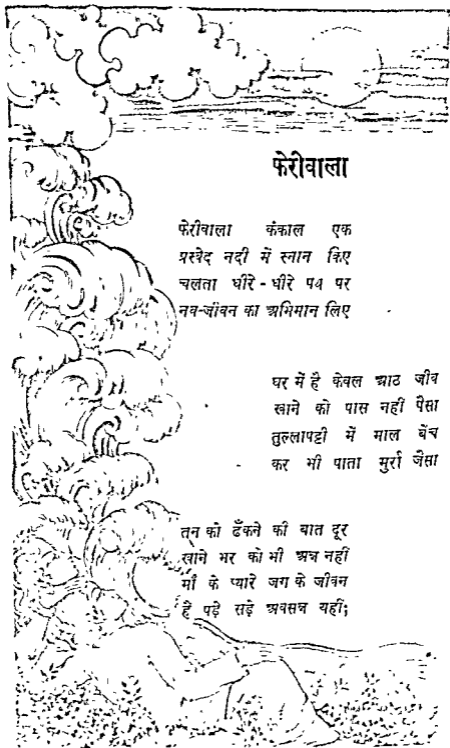 फेरीवाला
फेरीवाला कंकाल एक
प्रस्वेद नदी में स्नान किए
चलता धीरे-धीरे पथ पर
नव-जीवन का अभिमान लिए
घर में है केवल आठ जीव
खाने को पास नहीं पैसा
तुल्लापट्टी में माल बेंच
कर भी पाता मुर्रा जैसा
तन को ढँकने की बात दूर
खाने भर को भी अन्न नहीं
माँ के प्यारे जग के जीवन
हैं पड़े सड़े अवसन्न यहीं;